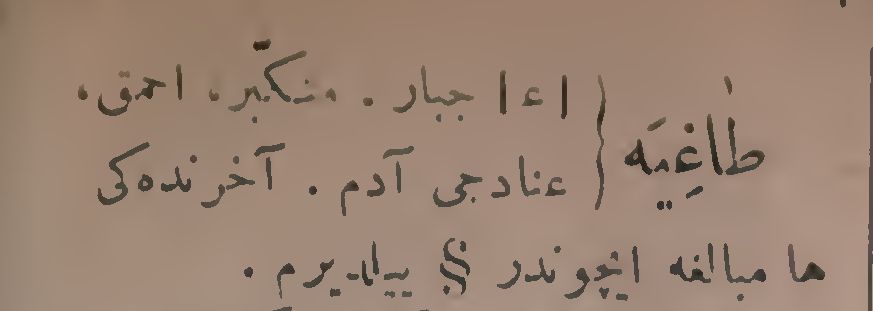 طَاغِيَه { |ع| جبار . متكبّر، احمق،
عنادجى آدم . آخرنده‌كى
ها مبالغه ايچوندر § ييلديرم .